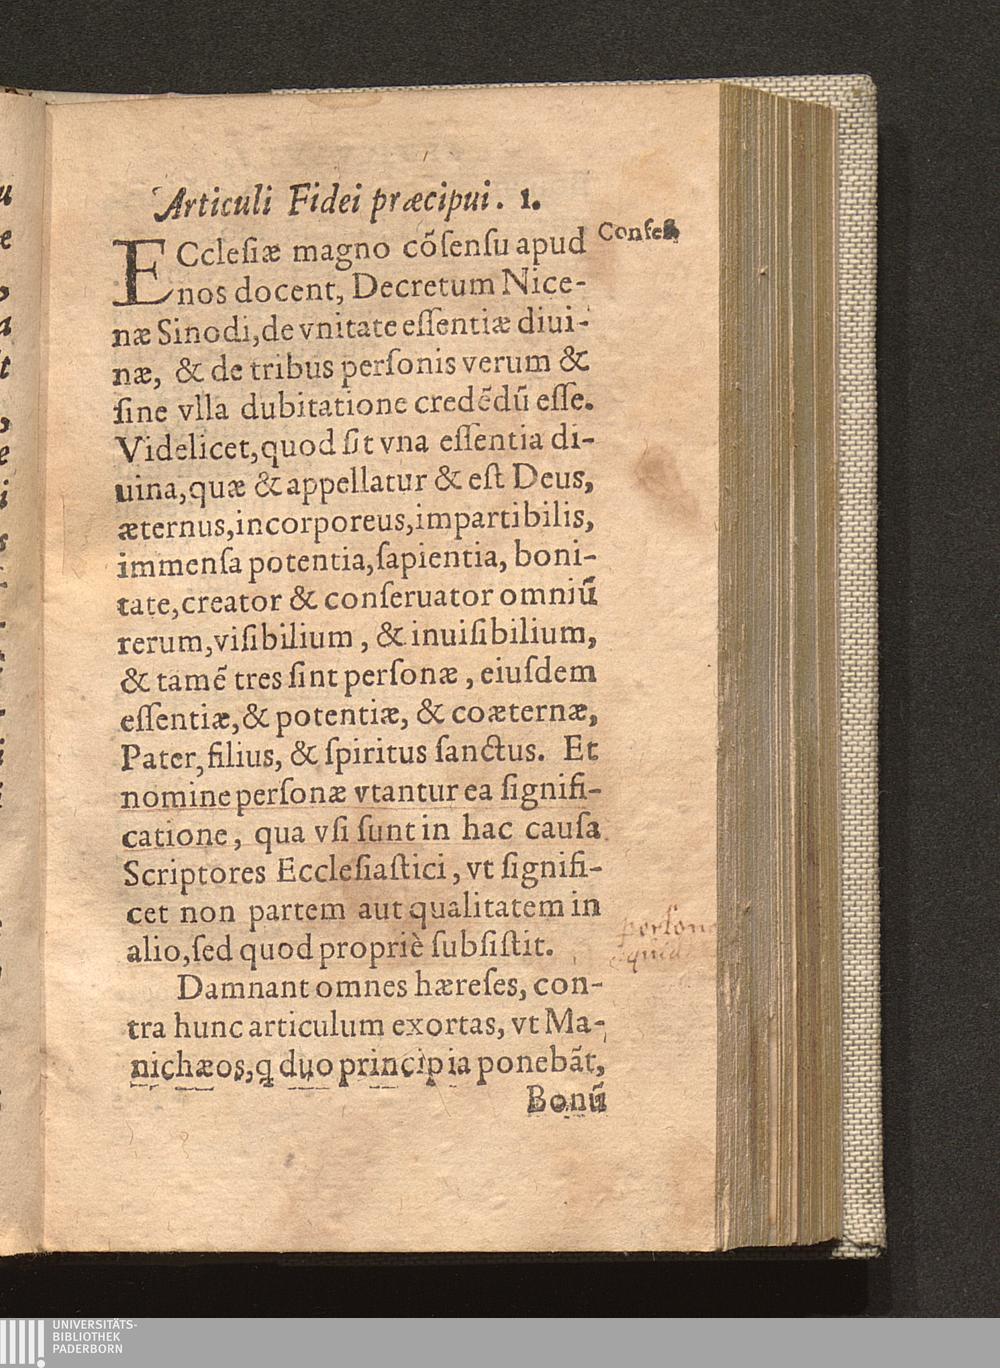 Articuli Fidei præcipui. 1.
ECcleſiæ magno cõſenſu apud
Confeſ.
nos docent, Decretum Nice-
næ Sinodi, de vnitate eſſentiæ diui-
næ, & de tribus perſonis verum &
ſine vlla dubitatione credẽdũ eſſe.
Videlicet, quod ſit vna eſſentia di-
uina, quæ & appellatur & eſt Deus,
æternus, incorporeus, impartibilis,
immenſa potentia, ſapientia, boni-
tate, creator & conſeruator omniũ
rerum, viſibilium, & inuiſibilium,
& tamẽ tres ſint perſonæ, eiuſdem
eſſentiæ, & potentiæ, & coæternæ,
Pater, filius, & ſpiritus ſanctus. Et
nomine perſonæ vtantur ea ſignifi-
catione, qua vſi ſunt in hac cauſa
Scriptores Eccleſiaſtici, vt ſignifi-
cet non partem aut qualitatem in
alio, ſed quod propriè ſubſiſtit.
perſona
quid
Damnant omnes hæreſes, con-
tra hunc articulum exortas, vt Ma-
nichæos, q duo principia ponebãt,
Bonũ
UNIVERSITÄTS-
BIBLIOTHEK
PADERBORN